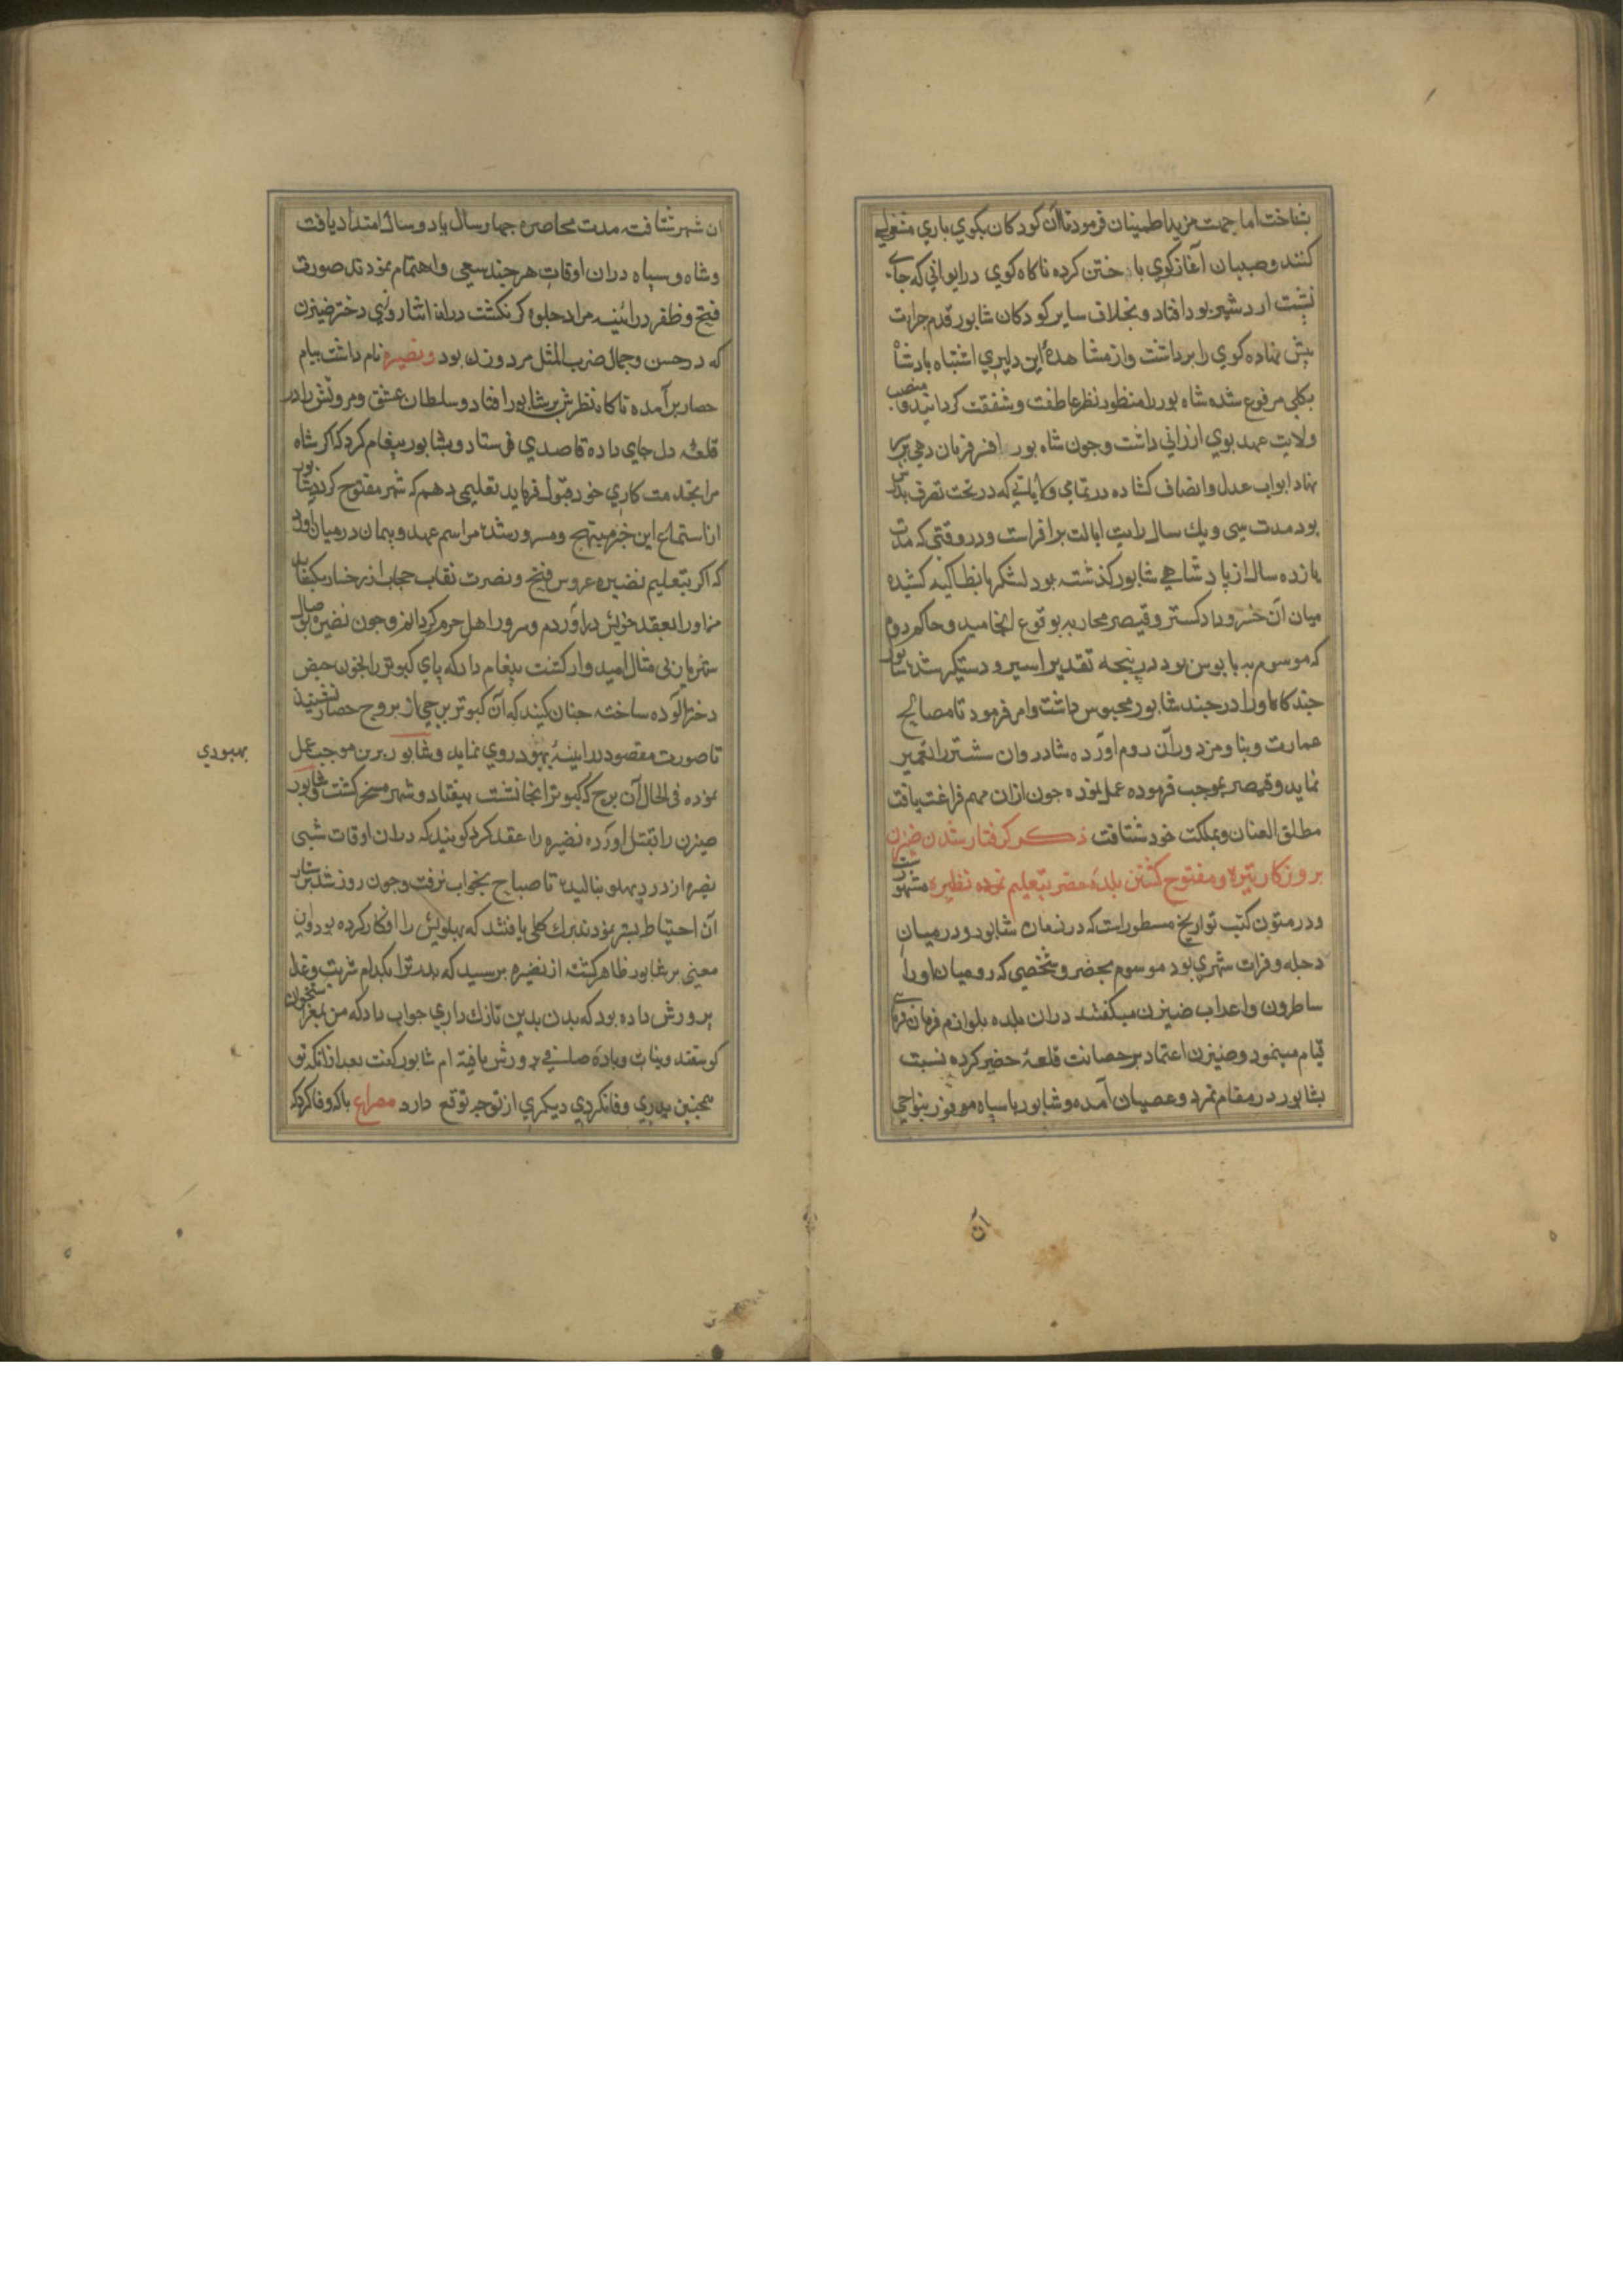 بشناخت اما جهت مزید اطمینان فرمود تا آن کودکان بکوی بازی مشغولی
کنند و صبیان آغاز کوی باختن کرده ناکاه کوی در ایوانی که جای
نشست اردشیر بود افتاد و بخلاف سایر کودکان شابور قدم جرات
پیش نهاده کوی را برداشت و از مشاهدهٔ این دلیری اشتباه بادشاه
بکلی مرفوع شده شاه بور را منظور نظر عاطفت و شفقت کردانید و منصب
ولایت عهد بوی ارزانی داشت و جون شاه بور افسر فرمان دهی بر سر
نهاد ابواب عدل و انصاف کشاده در تمامی ولایاتی که در تحت تصرف بدرش
بود مدت سی و یک سال رایت ایالت برافراشت و در وقتی که مدت
یازده سال از پادشاهی شابور کذشته بود لشکر بانطاکیه کشیده
میان آن خسرو دادکستر و قیصر محاربه بوقوع انجامید و حاکم روم
که موسوم به بابوس بود در پنجه تقدیر اسیر و دستکیر شد شابور
جندکاه او را در جند شابور محبوس داشت و امر فرمود تا مصالح
عمارت و بنا و مزدوران روم اورده شادروان شستر را تعمیر
نماید و قیصر بموجب فرموده عمل نموده جون ازان مهم فراغت یافت
مطلق العنان بمملکت خود شتافت ذکر کرفتار شدن ضیزن
بروزکار تیره و مفتوح کشتن بلدهٔ حضر بتعلیم نموده نظیره مشهور است
و در متون کتب تواریخ مسطور است که در زمان شابور در میان
دجله و فرات شهری بود موسوم بحضر و شخصی که رومیان او را
ساطرون و اعراب ضیزن میکفتند دران بلده بلوازم فرمان فرمای
قیام مینمود و ضیزن اعتماد بر حصانت قلعهٔ حضیر کرده نسبت
بشابور در مقام تمرد و عصیان آمده و شابور با سپاه موفور بنواحی
ان
ان شهر شتافت مدت محاصره جهار سال یا دو سال امتداد یافت
و شاه و سپاه دران اوقات هر جند سعی و اهتمام نمودند صورت
فتح و ظفر در ائینه مراد جلوه کر نکشت دران اثنا روزی دختر ضیزن
که در حسن و جمال ضرب المثل مرد و زن بود و نضیره نام داشت ببام
حصار برآمده ناکاه نظرش بر شابور افتاد و سلطان عشق و مروتش را در
قلعهٔ دل جای داده قاصدی فرستاد و بشابور پیغام کرد که اکر شاه
مرا بخدمت کاری خود قبول فرماید تعلیمی دهم که شهر مفتوح کردد شابور
از استماع این خبر مبتهج و مسرور شده مراسم عهد و پیمان در میان اورد
که اکر بتعلیم نضیره عروس فتح و نصرت نقاب حجاب از رخسار بکشاید
من او را بعقد خویش درآوردم و سرور اهل حرم کردانم و جون نضیره بوصال
شهریار بی مثال امیدوار کشت پیغام داد که پای کبوتر را بخون حیض
دختر آلوده ساخته جنان کنید که آن کبوتر بر برجی از بروج حصار نشیند
تا صورت مقصود در ائینهٔ بهبود روی نماید و شابور برین موجب عمل
بهبودی
نموده فی الحال آن برج که کبوتر انجا نشست بیفتاد و شهر مسخر کشت و شابور
ضیزن را بقتل اورده نضیره را عقد کرد کویند که دران اوقات شبی
نضیره از درد پهلو بنالید تا صباح بخواب نرفت و جون روز شد بر بستر
آن احتیاط بیشتر نمودند برک کلی یافتند که پهلویش را افکار کرده بود و این
معنی بر شابور ظاهر کشته از نضیره برسید که بدر ترا بکدام شربت و غذا
پرورش داده بود که بدن بدین نازک داری جواب داد که من بمغز استخوان
کوسفند و نبات و بادهٔ صافی پرورش یافته ام شابور کفت بعد ازانکه تو
بجنین پدری وفا نکردی دیکری از تو جه توقع دارد مصراع با که وفا کرد که